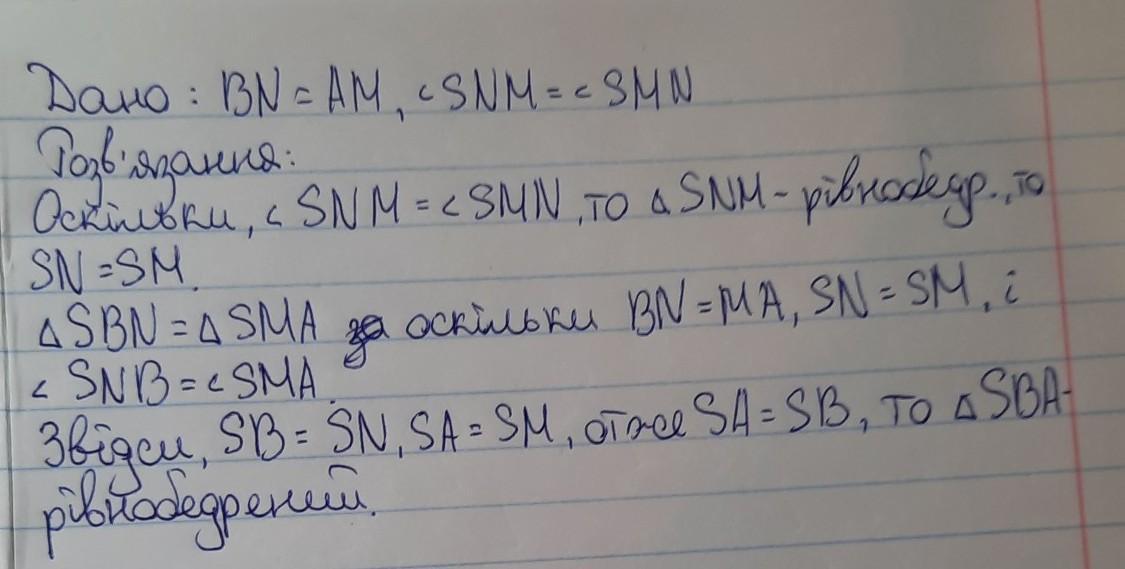 Дано: BN = AM, ∠SNM = ∠SMN
Розв'язання:
Оскільки, ∠SNM = ∠SMN, то △SNM - рівнобедр., то
SN = SM.
△SBN = △SMA оскільки BN = MA, SN = SM, і
∠SNB = ∠SMA.
Звідси, SB = SN, SA = SM, отже SA = SB, то △SBA-
рівнобедрений.